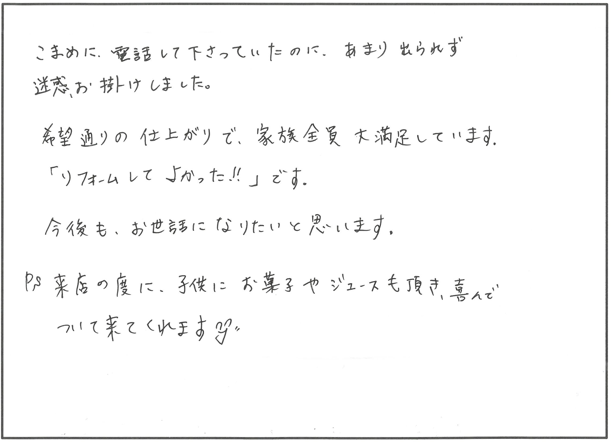 こまめに、電話して下さっていたのに、あまり出られず
迷惑お掛けしました。
希望通りの仕上がりで、家族全員大満足しています。
「リフォームしてよかった!!」です。
今後も、お世話になりたいと思います。
P.S 来店の度に、子供にお菓子やジュースも頂き、喜んで
ついて来てくれます